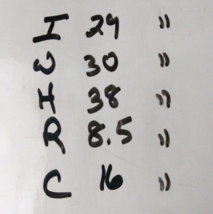 I 29 "
W 30 "
H 38 "
R 8.5 "
C 16 "